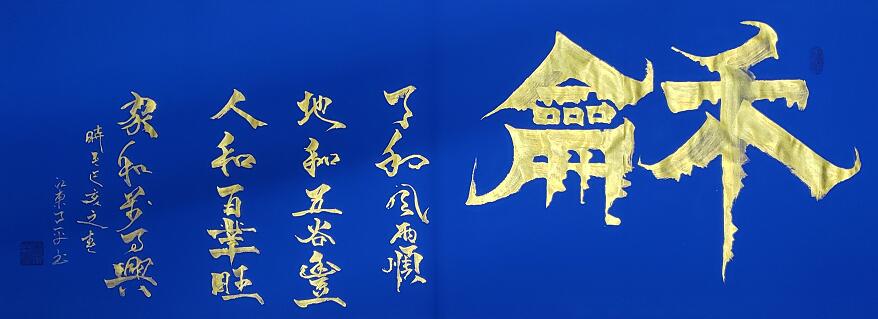 龢
天和風雨順
地和五谷豐
人和百業旺
家和萬事興
時在己亥之春
江東